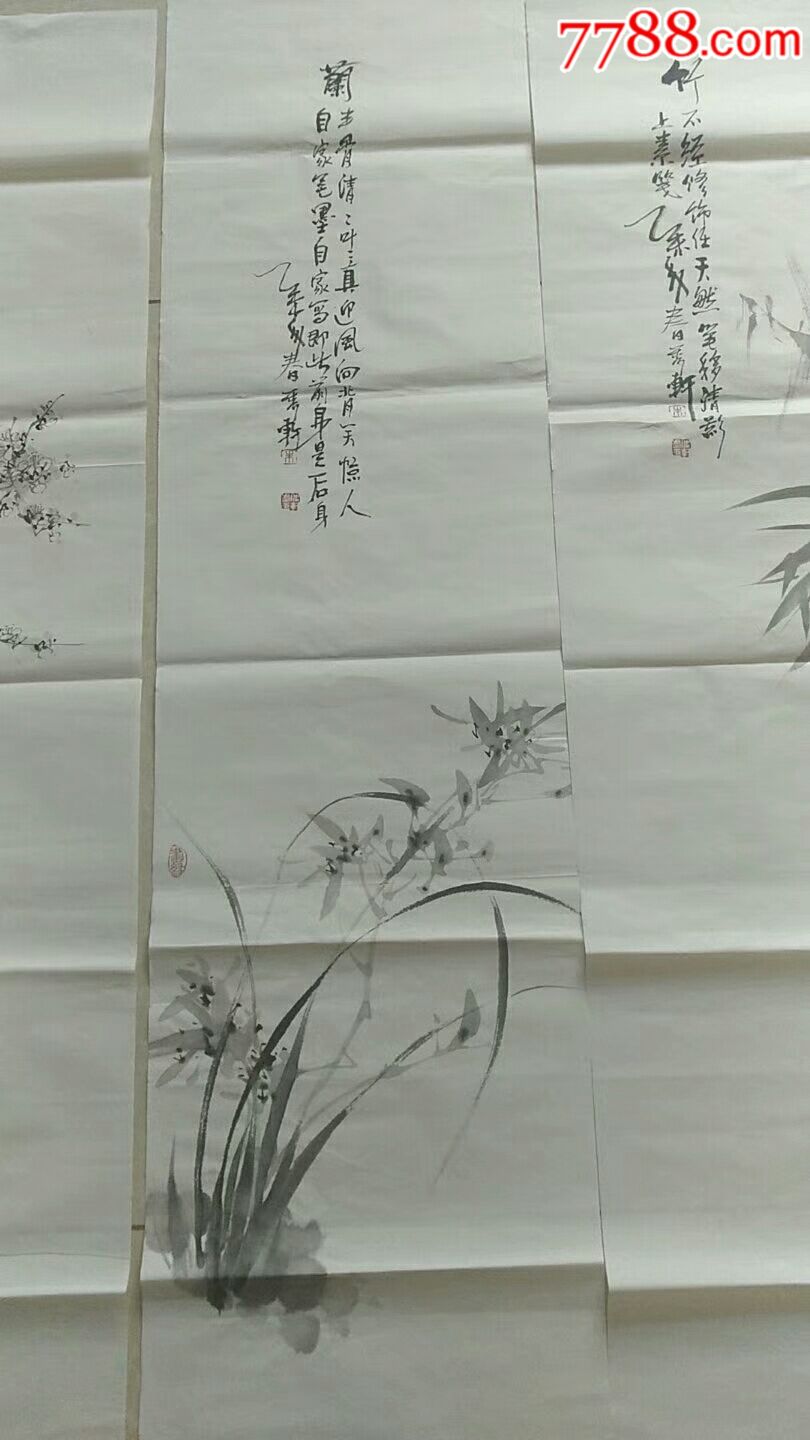 7788.com
竹不经修饰任天然笔移清影
上素笺
乙未春日
蘭生骨清〻叶〻真迎風向背笑憬人
自家笔墨自家写即此前身是后身
乙未春